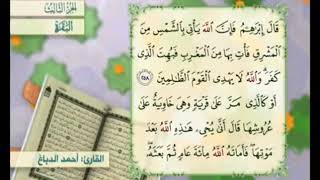 الجزء الثالث
البقرة
قَالَ إِبْرَاهِيمُ فَإِنَّ اللَّهَ يَأْتِي بِالشَّمْسِ مِنَ
الْمَشْرِقِ فَأْتِ بِهَا مِنَ الْمَغْرِبِ فَبُهِتَ الَّذِي
كَفَرَ وَاللَّهُ لَا يَهْدِي الْقَوْمَ الظَّالِمِينَ ٢٥٨
أَوْ كَالَّذِي مَرَّ عَلَى قَرْيَةٍ وَهِيَ خَاوِيَةٌ عَلَى
عُرُوشِهَا قَالَ أَنَّى يُحْيِي هَذِهِ اللَّهُ بَعْدَ
مَوْتِهَا فَأَمَاتَهُ اللَّهُ مِائَةَ عَامٍ ثُمَّ بَعَثَهُ
القارئ: أحمد الدباغ